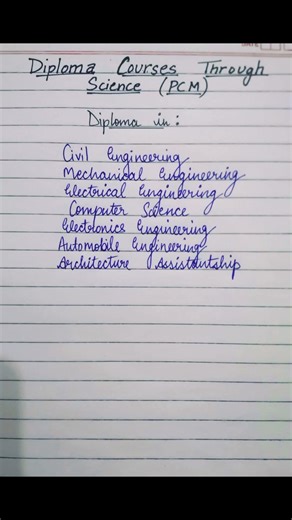 Diploma Courses Through
Science (PCM)
Diploma in:
Civil Engineering
Mechanical Engineering
Electrical Engineering
Computer Science
Electronics Engineering
Automobile Engineering
Architecture Assistantship